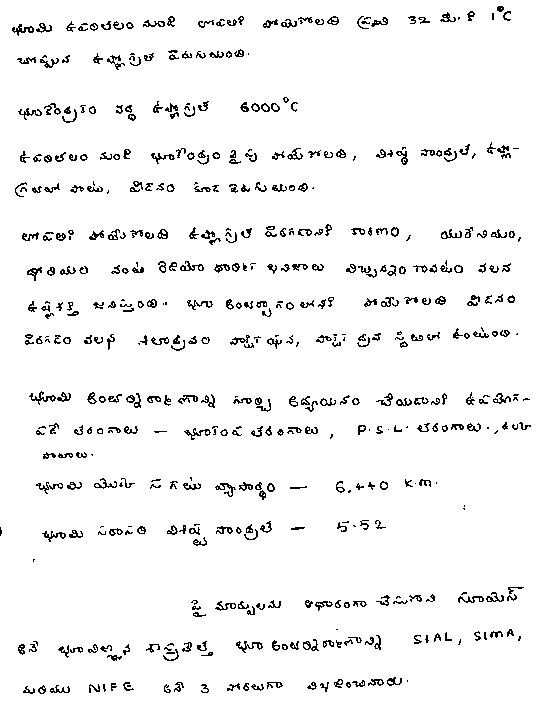 భూమి ఉపరితలం నుండి లోపలికి పోయేకొలది ప్రతి 32 మీ.కి 1°C
చొప్పున ఉష్ణోగ్రత పెరుగుతుంది.
భూకేంద్రకం వద్ద ఉష్ణోగ్రత 6000°C
ఉపరితలం నుండి భూకేంద్రం వైపు పోయేకొలది, విశిష్ట సాంద్రత, ఉష్ణో-
గ్రతతో పాటు, పీడనం కూడ పెరుగుతుంది.
లోపలికి పోయేకొలది ఉష్ణోగ్రత పెరగడానికి కారణం, యురేనియం,
థోరియం వంటి రేడియో ధార్మిక ఖనిజాలు విచ్ఛిన్నం కావటం వలన
ఉష్ణశక్తి జనిస్తుంది. భూ అంతర్భాగంలోనికి పోయేకొలది పీడనం
పెరగడం వలన శిలాద్రవం పాక్షిక ఘన, పాక్షిక ద్రవ స్థితిలో ఉంటుంది.
భూమి అంతర్నిర్మాణాన్ని గూర్చి అధ్యయనం చేయడానికి ఉపయోగ-
పడే తరంగాలు – భూకంప తరంగాలు, P.S.L. తరంగాలు.,
భూమి యొక్క సగటు వ్యాసార్థం – 6,440 K.m.
భూమి సరాసరి విశిష్ట సాంద్రత – 5.52
పై మార్పులను ఆధారంగా చేసుకొని సూయెస్
అనే భూవిజ్ఞాన శాస్త్రవేత్త భూ అంతర్నిర్మాణాన్ని SIAL, SIMA,
మరియు NIFE అనే 3 పొరలుగా విభజించినారు.